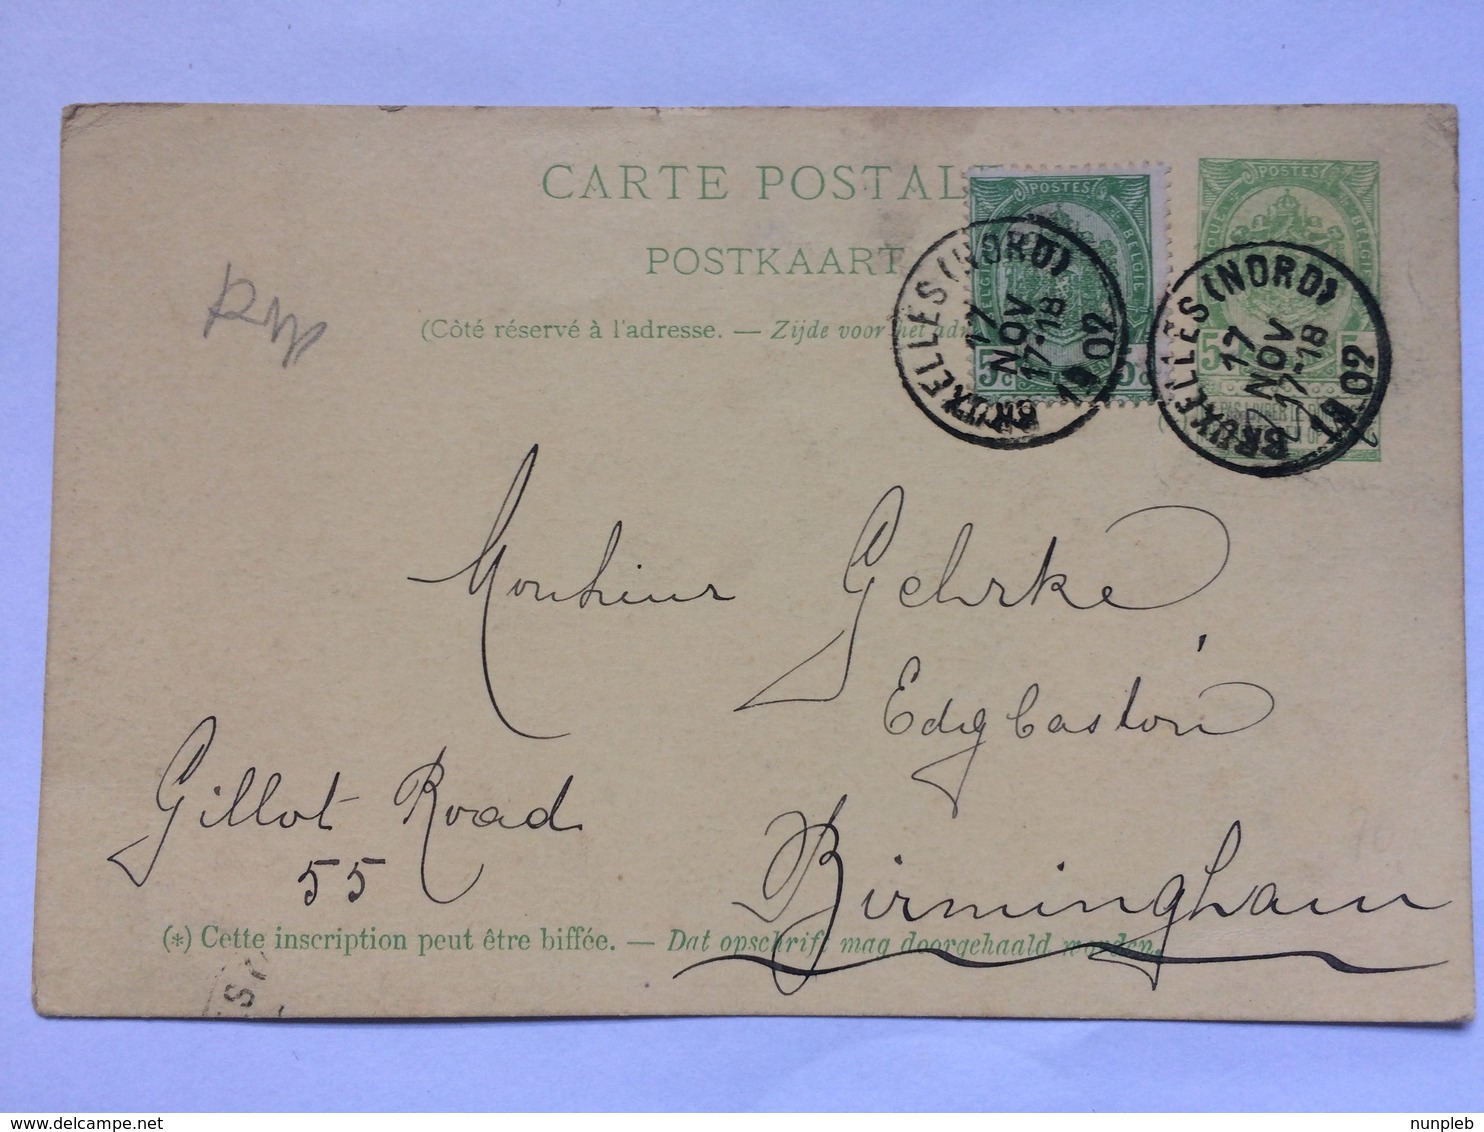 CARTE POSTAL
POSTKAART
(Côté réservé à l'adresse. — Zijde voor het adr
POSTES
5c 5c
BRUXELLES (NORD)
17
NOV
17-18
1902
POSTES
5
BRUXELLES (NORD)
17
NOV
17-18
1902
Monsieur Gehrke
Edgbaston
Gillot Road
55
Birmingham
(*) Cette inscription peut être biffée. — Dat opschrift mag doorgehaald worden.
delcampe.net
nunpleb